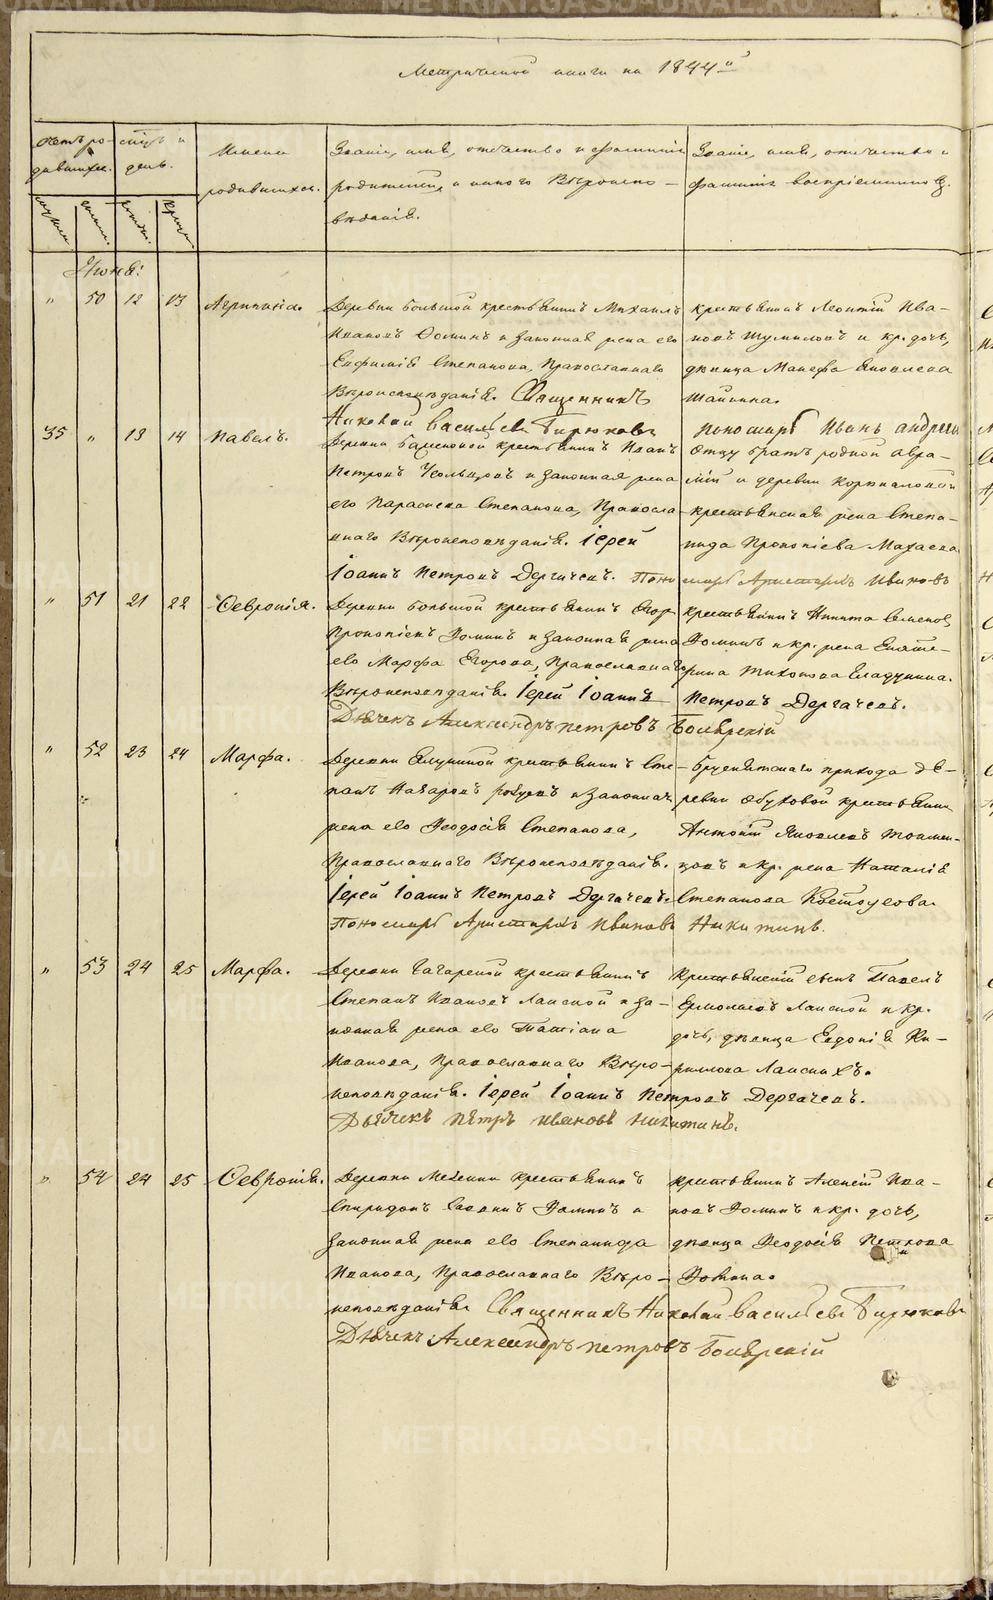 Метрической книги на 1844й
Счетъ ро-
дившихся.
мсцъ и
день.
Имена
родившихся.
Званіе, имя, отчество и фамилія
родителей, и какого Вѣроиспо-
вѣданія.
Званіе, имя, отчество и
фамилія воспріемниковъ.
Іюня:
" 50 12 13 Агрипина.
Деревни Большой крестьянинъ Михаилъ
Ивановъ Ѳоминъ и законная жена его
Евфимія Степанова, Православнаго
Вѣроисповѣданія. Священникъ
Николай Васильевъ Бирюковъ
крестьянинъ Леонтій Ива-
новъ Шумиловъ и кр. дочь,
дѣвица Манефа Яковлева
Пономарь Иванъ Андреи
35 " 13 14 Павелъ.
Деревни крестьянинъ Иванъ
Петровъ и законная жена
его Параскева Степанова, Правосла-
внаго Вѣроисповѣданія. Іерей
Іоаннъ Петровъ Дергачевъ. Пономарь Аристархъ Ивановъ
Отцу братъ родной Авра-
мій и деревни
крестьянская жена Степа-
нида Прокопіева
" 51 21 22 Февронія.
Деревни Большой крестьянинъ Егор
Прокопіевъ Ѳоминъ и законная жена
его Марфа Егорова, Православнаго
Вѣроисповѣданія. Іерей Іоаннъ Петровъ Дергачевъ.
Дьячекъ Александръ Петровъ Боярскій
крестьянинъ Никита Семенов
Ѳоминъ и кр. жена Екате-
рина Тихонова
" 52 23 24 Марфа.
Деревни крестьянинъ Сте-
панъ Назаровъ и законная
жена его Ѳеодосія Степанова,
Православнаго Вѣроисповѣданія.
Іерей Іоаннъ Петровъ Дергачевъ.
Пономарь Аристархъ Ивановъ Никитинъ.
прихода де-
ревни Обуховой крестьянин
Антоній Яковлевъ
и кр. жена Наталія
Степанова Костоусова.
" 53 24 25 Марфа.
Деревни Гагарской крестьянинъ
Степанъ Ивановъ Ланской и за-
конная жена его Татіана
Иванова, Православнаго Вѣро-
исповѣданія. Іерей Іоаннъ Петровъ Дергачевъ.
Дьячекъ Петръ Ивановъ Никитинъ.
Крестьянскій сынъ Павелъ
Ермолаевъ Ланской и кр.
дочь, дѣвица Евдокія Ки-
рилова Ланскихъ.
" 54 24 25 Февронія.
Деревни Мезенки крестьянинъ
Спиридонъ Саввинъ Ѳоминъ и
законная жена его Степанида
Иванова, Православнаго Вѣро-
исповѣданія Священникъ Николай Васильевъ Бирюковъ
Дьячекъ Александръ Петровъ Боярскій
крестьянинъ Алексій Ива-
новъ Ѳоминъ и кр. дочь,
дѣвица Ѳеодосія
Ѳомина.